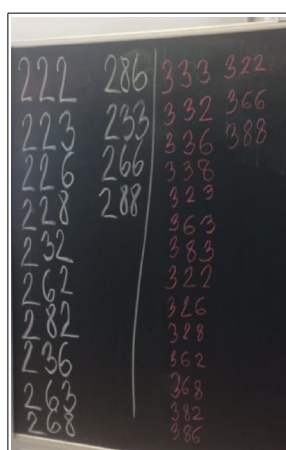 222
223
226
228
232
262
282
236
263
268
286
233
266
288
333
332
336
338
323
363
383
322
326
328
362
368
382
386
322
366
388